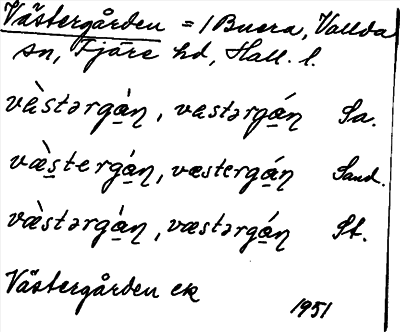 Västergården = / Buera, Vallda
sn, Fjäre hd, Hall. l.
væ̀stərgá̱ɳ, væstərgá̱ɳ Sa.
væ̀s̱tergá̱ɳ, væstergá̱ɳ Sand.
væ̀stərgá̱ɳ, væstərgá̱ɳ St.
Västergården ek
1951